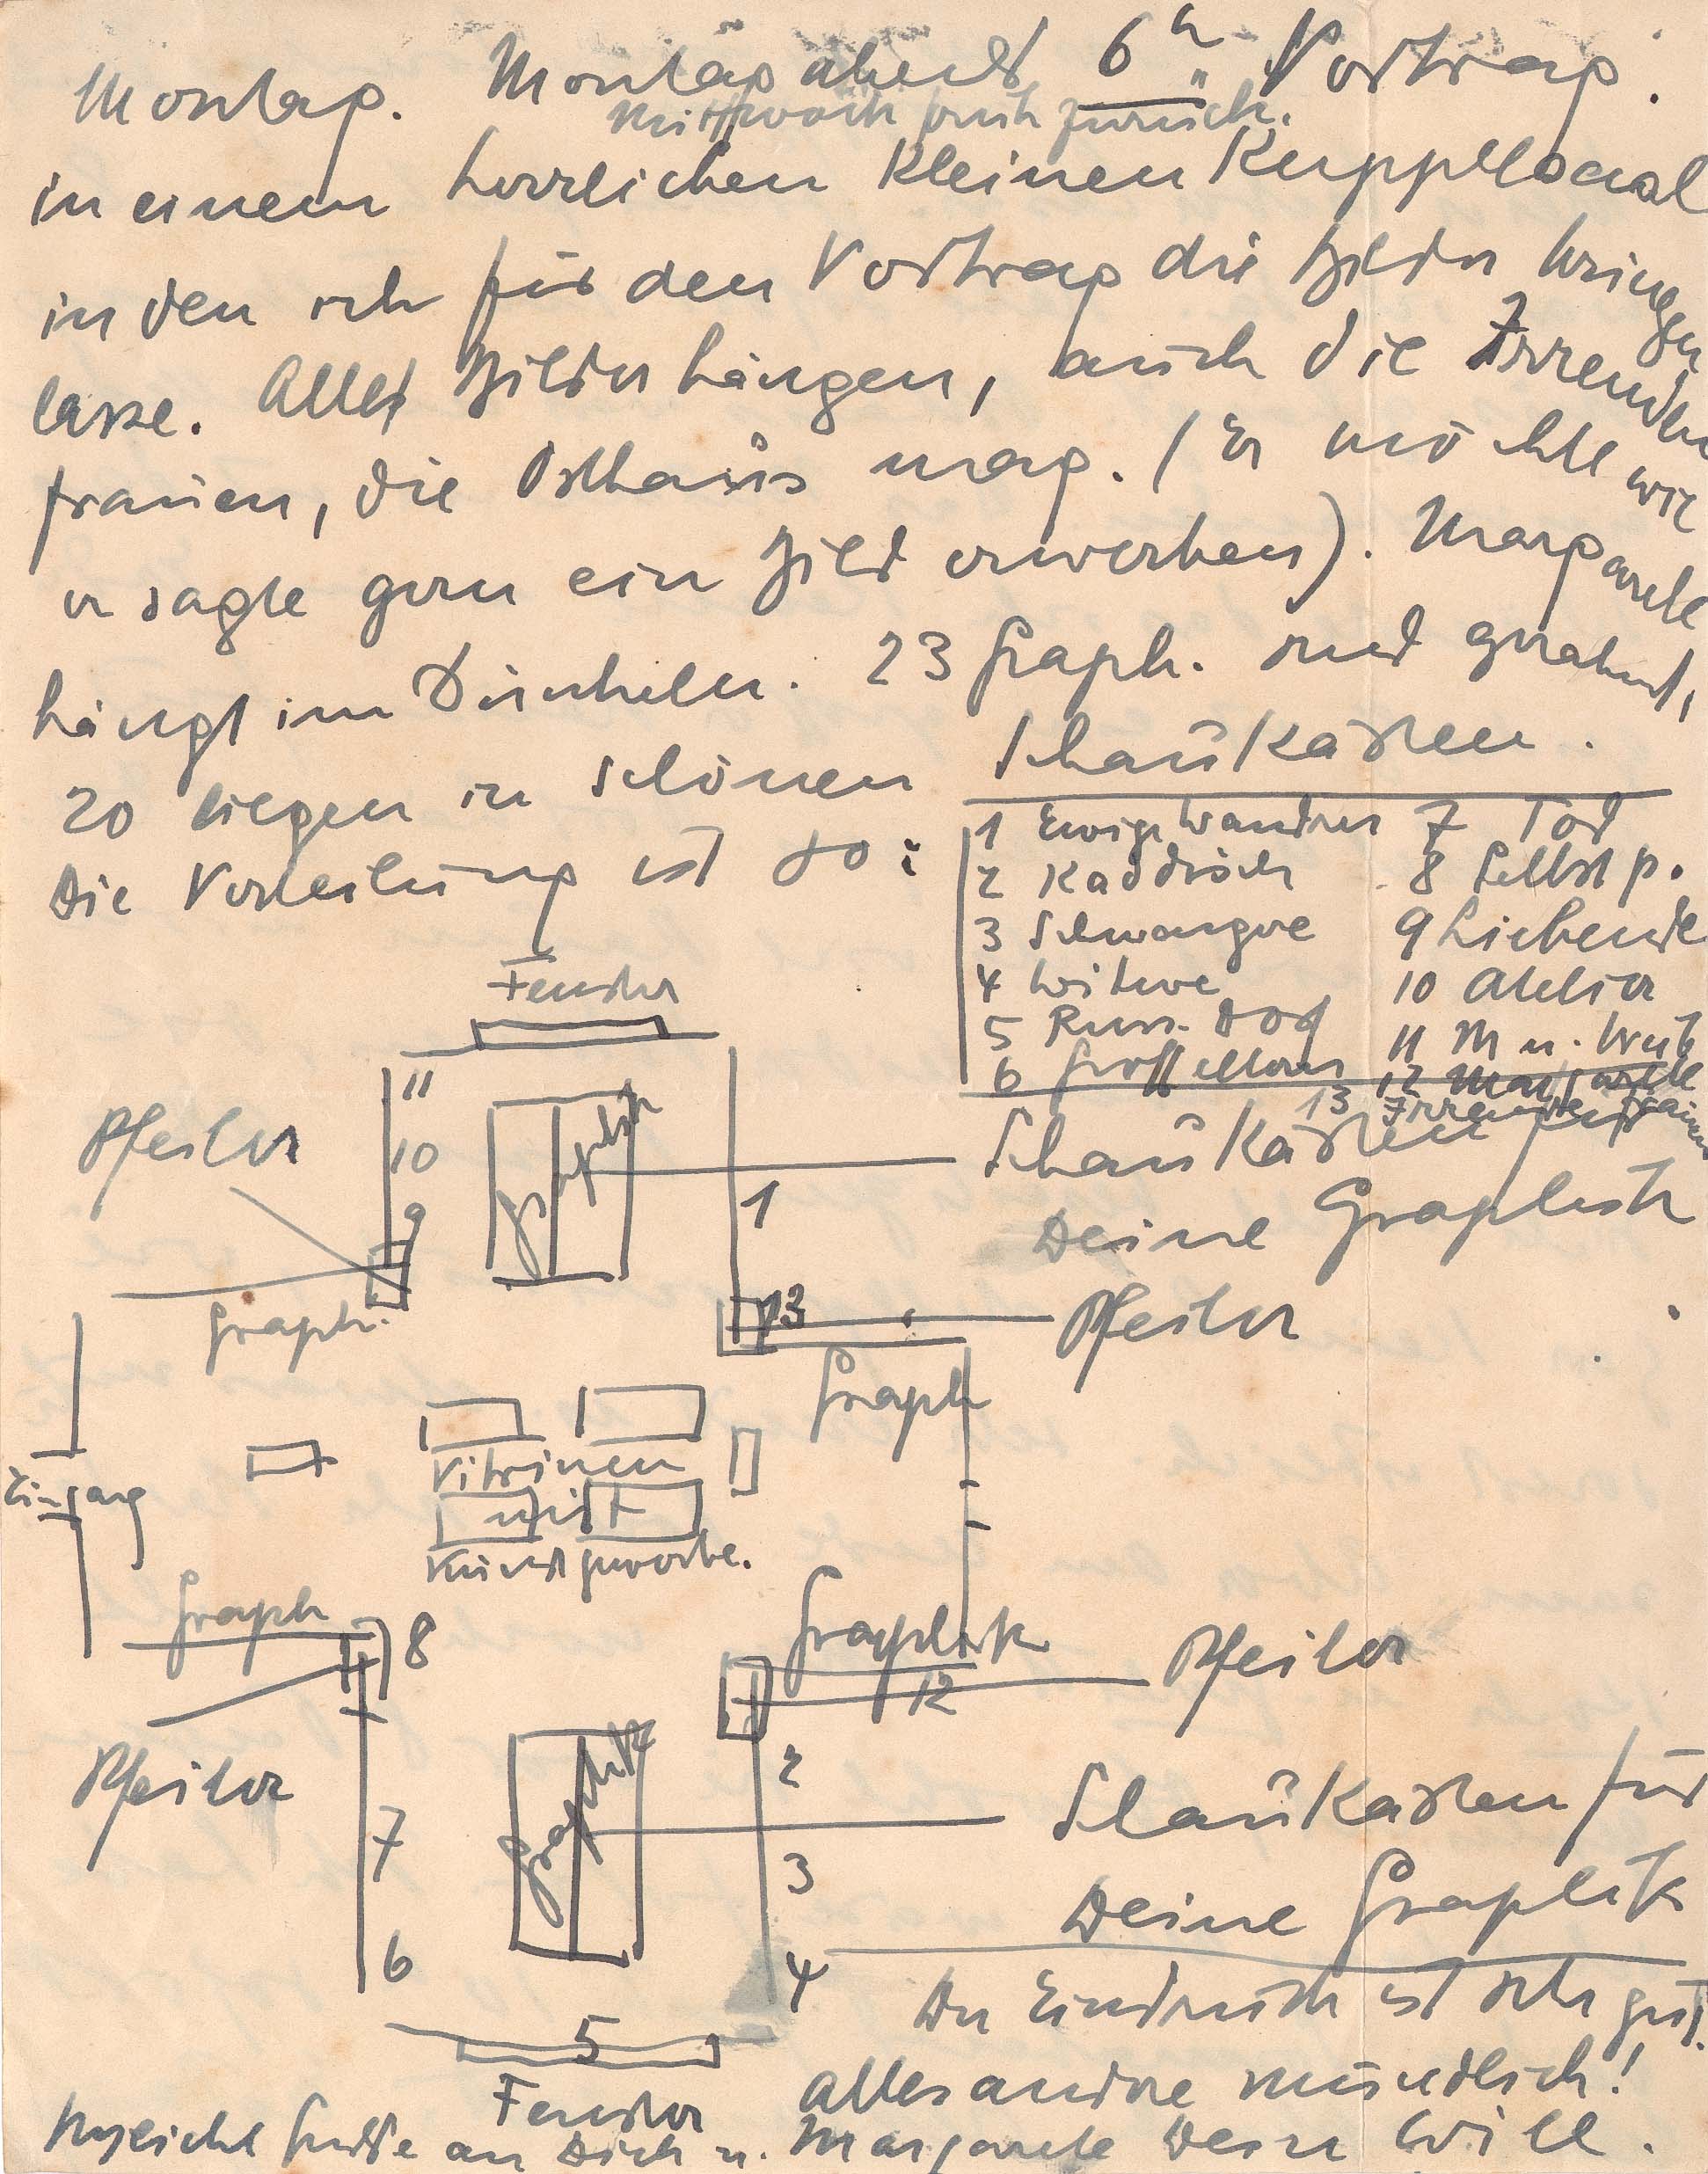 Montag. Montag abend 6 h. Vortrag.
Mittwoch früh zurück.
in einem herrlichen kleinen Kuppelsaal
in den ich für den Vortrag die Bilder bringen
lasse. Alle Bilder hängen, auch die Irrenden
frauen, die Osthaus mag. (Er möchte wie
er sagte gern ein Bild erwerben). Margarete
hängt im Dunkeln. 23 Graph. sind gerahmt,
20 liegen in schönen Schaukästen.
Die Verteilung ist so:
1 Ewige Wandrer
2 Kaddisch
3 Schwangre
4 Witwe
5 Russ. Dorf
6 Großeltern
7 Tod
8 Selbstp.
9 Liebende
10 Atelier
11 M u. Weib
12 Margarete
13 Irrende Frauen
Fenster
11
Pfeiler
10
Graphik
Schaukästen für
9
1
Deine Graphik
13
Pfeiler
Graph.
Graph
Vitrinen
Eingang
mit
Kunstgewerbe.
Graph
8
Graphik
Pfeiler
12
Pfeiler
2
7
Graphik
Schaukästen für
3
Deine Graphik
6
4
Der Eindruck ist sehr gut.
5
Alles andre mündlich!
Fenster
Herzlichst Grüße an Dich u. Margarete Dein Will.